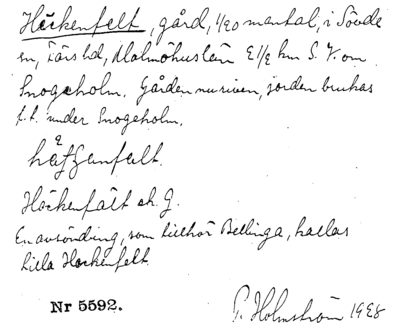 Häckenfelt, gård, 1/20 mantal, i Sövde
sn, Färs hd, Malmöhus län 2 1/2 km S.V. om
Snogeholm. Gården nuriven, jorden brukas
f.t. under Snogeholm.
Häckenfält ch. G.
En avsöndring, som tillhör Bellinga, kallas
Lilla Häckenfelt.
Nr 5592.
P. Holmström 1928